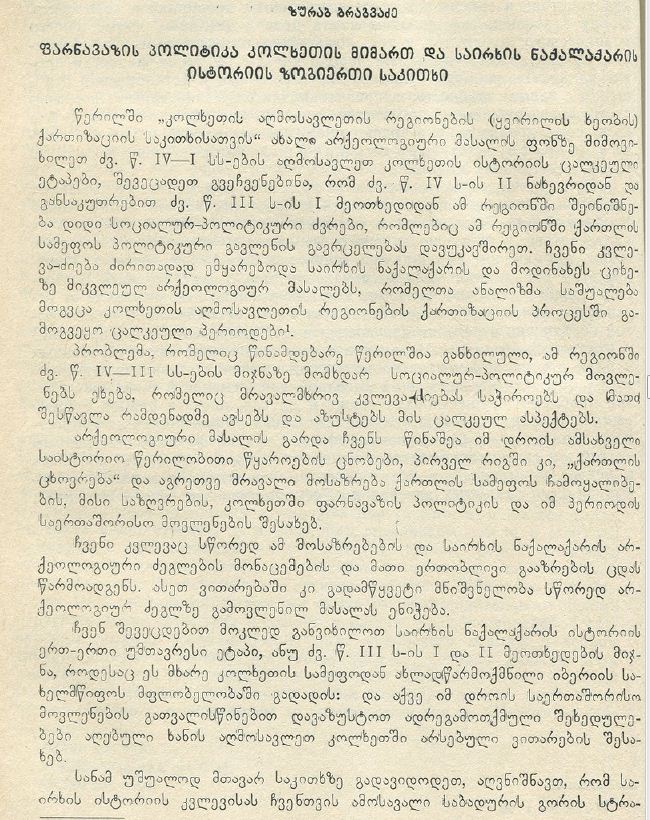 ზურაბ ბრაგვაძე
ფარნავაზის პოლიტიკა კოლხეთის მიმართ და საირხის ნაქალაქარის
ისტორიის ზოგიერთი საკითხი
წერილში „კოლხეთის აღმოსავლეთის რეგიონების (ყვირილის ხეობის)
ქართიზაციის საკითხისათვის“ ახალი არქეოლოგიური მასალის ფონზე მიმოვი-
ხილეთ ძვ. წ. IV—I სს-ების აღმოსავლეთ კოლხეთის ისტორიის ცალკეული
ეტაპები, შევეცადეთ გვეჩვენებინა, რომ ძვ. წ. IV ს-ის II ნახევრიდან და
განსაკუთრებით ძვ. წ. III ს-ის I მეოთხედიდან ამ რეგიონში შეინიშნე-
ბა დიდი სოციალურ-პოლიტიკური ძვრები, რომლებიც ამ რეგიონში ქართლის
სამეფოს პოლიტიკური გავლენის გავრცელებას დავუკავშირეთ. ჩვენი კვლე-
ვა-ძიება ძირითადად ემყარებოდა საირხის ნაქალაქარის და მოდინახეს ციხე-
ზე მიკვლეულ არქეოლოგიურ მასალებს, რომელთა ანალიზმა საშუალება
მოგვცა კოლხეთის აღმოსავლეთის რეგიონების ქართიზაციის პროცესში გა-
მოგვეყო ცალკეული პერიოდები¹.
პრობლემა, რომელიც წინამდებარე წერილშია განხილული, ამ რეგიონში
ძვ. წ. IV—III სს-ების მიჯნაზე მომხდარ სოციალურ-პოლიტიკურ მოვლე-
ნებს ეხება, რომელიც მრავალმხრივ კვლევა-ძიებას საჭიროებს და მათი
შესწავლა რამდენადმე ავსებს და აზუსტებს მის ცალკეულ ასპექტებს.
არქეოლოგიური მასალის გარდა ჩვენს წინაშეა იმ დროის ამსახველი
საისტორიო წერილობითი წყაროების ცნობები, პირველ რიგში კი, „ქართლის
ცხოვრება“ და აგრეთვე მრავალი მოსაზრება ქართლის სამეფოს ჩამოყალიბე-
ბის, მისი საზღვრების, კოლხეთში ფარნავაზის პოლიტიკის და იმ პერიოდის
საერთაშორისო მოვლენების შესახებ.
ჩვენი კვლევაც სწორედ ამ მოსაზრებების და საირხის ნაქალაქარის არ-
ქეოლოგიური ძეგლების მონაცემების და მათი ერთობლივი გააზრების ცდას
წარმოადგენს. ასეთ ვითარებაში კი გადამწყვეტი მნიშვნელობა სწორედ არ-
ქეოლოგიურ ძეგლზე გამოვლენილ მასალას ენიჭება.
ჩვენ შევეცდებით მოკლედ განვიხილოთ საირხის ნაქალაქარის ისტორიის
ერთ-ერთი უმთავრესი ეტაპი, ანუ ძვ. წ. III ს-ის I და II მეოთხედების მიჯ-
ნა, როდესაც ეს მხარე კოლხეთის სამეფოდან ახლადწარმოქმნილი იბერიის სა-
ხელმწიფოს მფლობელობაში გადადის: და აქვე იმ დროის საერთაშორისო
მოვლენების გათვალისწინებით დავაზუსტოთ ადრეგამოთქმული შეხედულე-
ბები აღებული ხანის აღმოსავლეთ კოლხეთში არსებული ვითარების შესა-
ხებ.
სანამ უშუალოდ მთავარ საკითხზე გადავიდოდეთ, აღვნიშნავთ, რომ სა-
ირხის ისტორიის კვლევისას ჩვენთვის ამოსავალი საბადურის გორის სტრა-